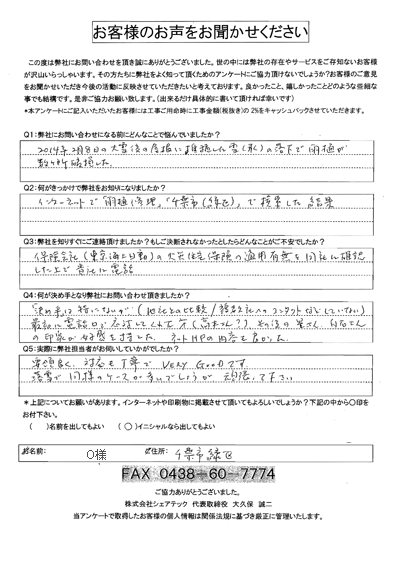 お客様のお声をお聞かせください
この度は弊社にお問い合わせを頂き誠にありがとうございました。世の中には弊社の存在やサービスをご存知ないお客様
が沢山いらっしゃいます。その方たちに弊社をよく知って頂くためのアンケートにご協力頂けないでしょうか?お客様のご意見
をお聞かせいただき今後の活動に反映させていきたいと考えております。良かったこと、嬉しかったことどのような些細な
事でも結構です。是非ご協力お願い致します。(出来るだけ具体的に書いて頂ければ幸いです)
*本アンケートにご記入いただいたお客様には工事ご用命時に工事金額(税抜き)の 2%をキャッシュバックさせていただきます。
Q1:弊社にお問い合わせになる前にどんなことで悩んでいましたか?
2014年2月8日の大雪後の屋根に堆積した雪(氷)の落下で雨樋が
数ヶ所破損した。
Q2:何がきっかけで弊社をお知りになりましたか?
インターネットで「雨樋修理」「千葉市(緑区)」で検索した結果
Q3:弊社を知りすぐにご連絡頂けましたか?もしご決断されなかったとしたらどんなことがご不安でしたか?
保険会社(東京海上日動)の火災住宅保険の適用有無を同社に確認
した上で貴社に電話
Q4:何が決め手となり弊社にお問い合わせ頂きましたか?
決め手は特にないが(他社との比較/複数社へのコンタクトなどしていない)
最初に電話口で応対してくれた方
の印象が好感を持した。
Q5:実際に弊社担当者がお伺いしていかがでしたか?
要領良く、対応も丁寧で VERY GOODです
落雪で同様のケースが多いでしょうが 頑張って下さい
*上記についてお願いがあります。インターネットや印刷物に掲載させて頂いてもよろしいでしょうか?下記の中から○印を
お付下さい。
( )名前を出してもよい ( ○ )イニシャルなら出してもよい
お名前: O様 ご住所: 千葉市緑区
FAX 0438-60-7774
ご協力ありがとうございました。
株式会社シェアテック 代表取締役 大久保 誠二
当アンケートで取得したお客様の個人情報は関係法規に基づき厳正に管理いたします。